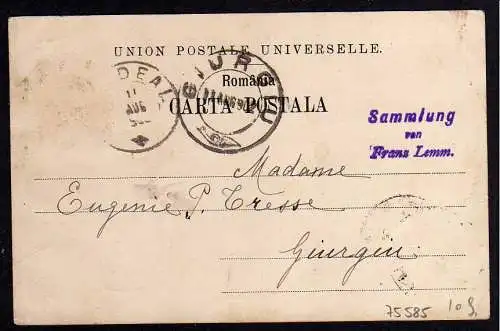 UNION POSTALE UNIVERSELLE.
DEAL
11
AUG
GIURGIU
România
CARTA POSTALA
Sammlung
von
Franz Lemm.
Madame
Eugenie P. Tresse
Giurgiu
75585 10 S.